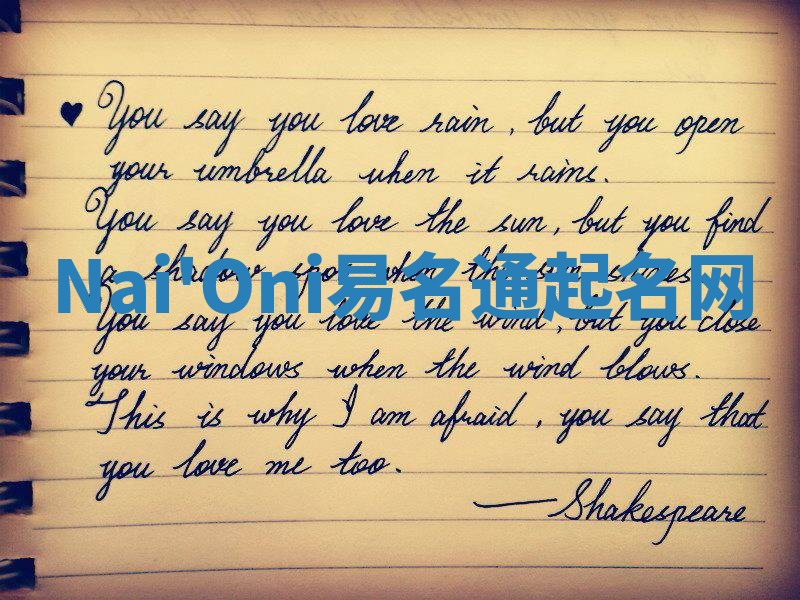 ♥ You say you love rain, but you open
your umbrella when it rains.
You say you love the sun, but you find
a shadow spot when the sun shines.
Nai'Oni易名通起名网
You say you love the wind, but you close
your windows when the wind blows.
This is why I am afraid, you say that
you love me too.
— Shakespeare